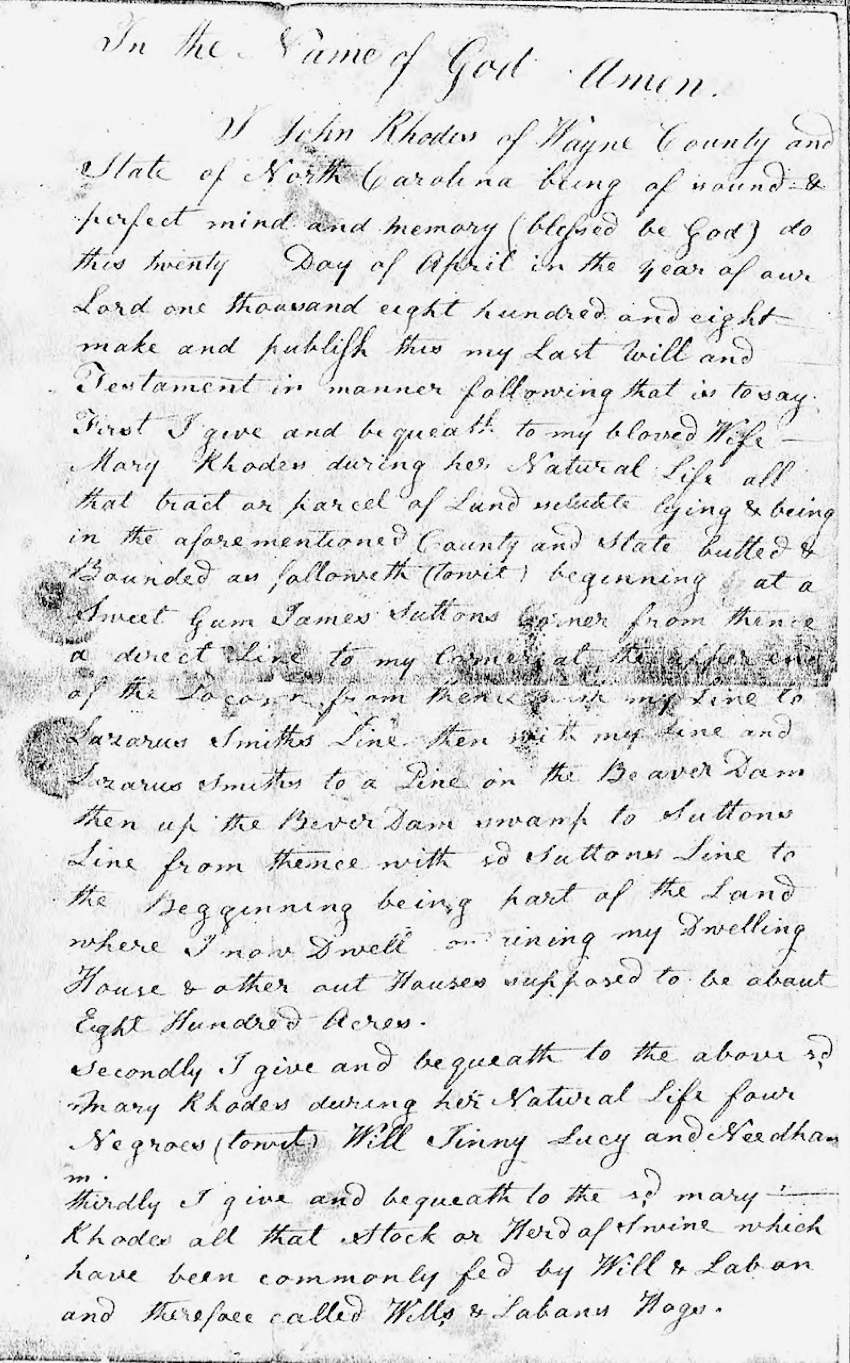 In the Name of God Amen.
I John Rhodes of Wayne County and
State of North Carolina being of sound &
perfect mind and memory (blessed be God) do
this twenty Day of April in the year of our
Lord one thousand eight hundred and eight
make and publish this my Last Will and
Testament in manner following that is to say.
First I give and bequeath to my bloved Wife
Mary Rhodes during her Natural Life all
that tract or parcel of Land lying & being
in the aforementioned County and State butted &
Bounded as followeth (towit) beginning at a
Sweet Gum James Suttons Corner from thence
a direct Line to my Corner at the upper end
of the from thence with my Line to
Lazarus Smiths Line then with my Line and
Lazarus Smiths to a Pine on the Beaver Dam
then up the Bever Dam swamp to Suttons
Line from thence with sd Suttons Line to
the Begginning being part of the Land
where I now Dwell my Dwelling
House & other out Houses supposed to be about
Eight Hundred Acres.
Secondly I give and bequeath to the above sd
Mary Rhodes during her Natural Life four
Negroes (towit) Will Jinny Lucy and Needha
m.
thirdly I give and bequeath to the sd mary
Rhodes all that Stock or Herd of Swine which
have been commonly fed by Will & Laban
and therefore called Wills & Labans Hogs.